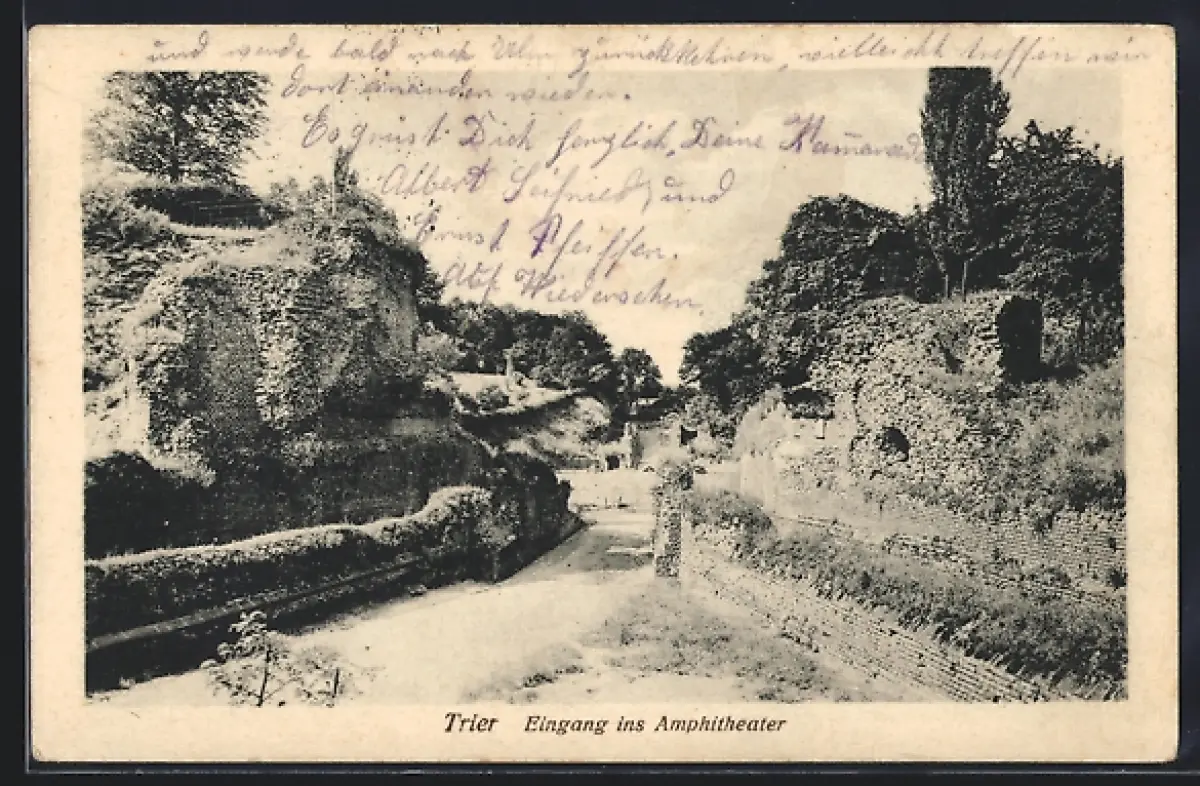 und werde bald nach Ulm zurückkehren, vielleicht treffen wir
dort einander wieder.
Es grüst Dich herzlich, Deine Kameraden
Albert Seifried, und
Ernst Pfeiffer.
Auf Wiedersehen,
Trier Eingang ins Amphitheater